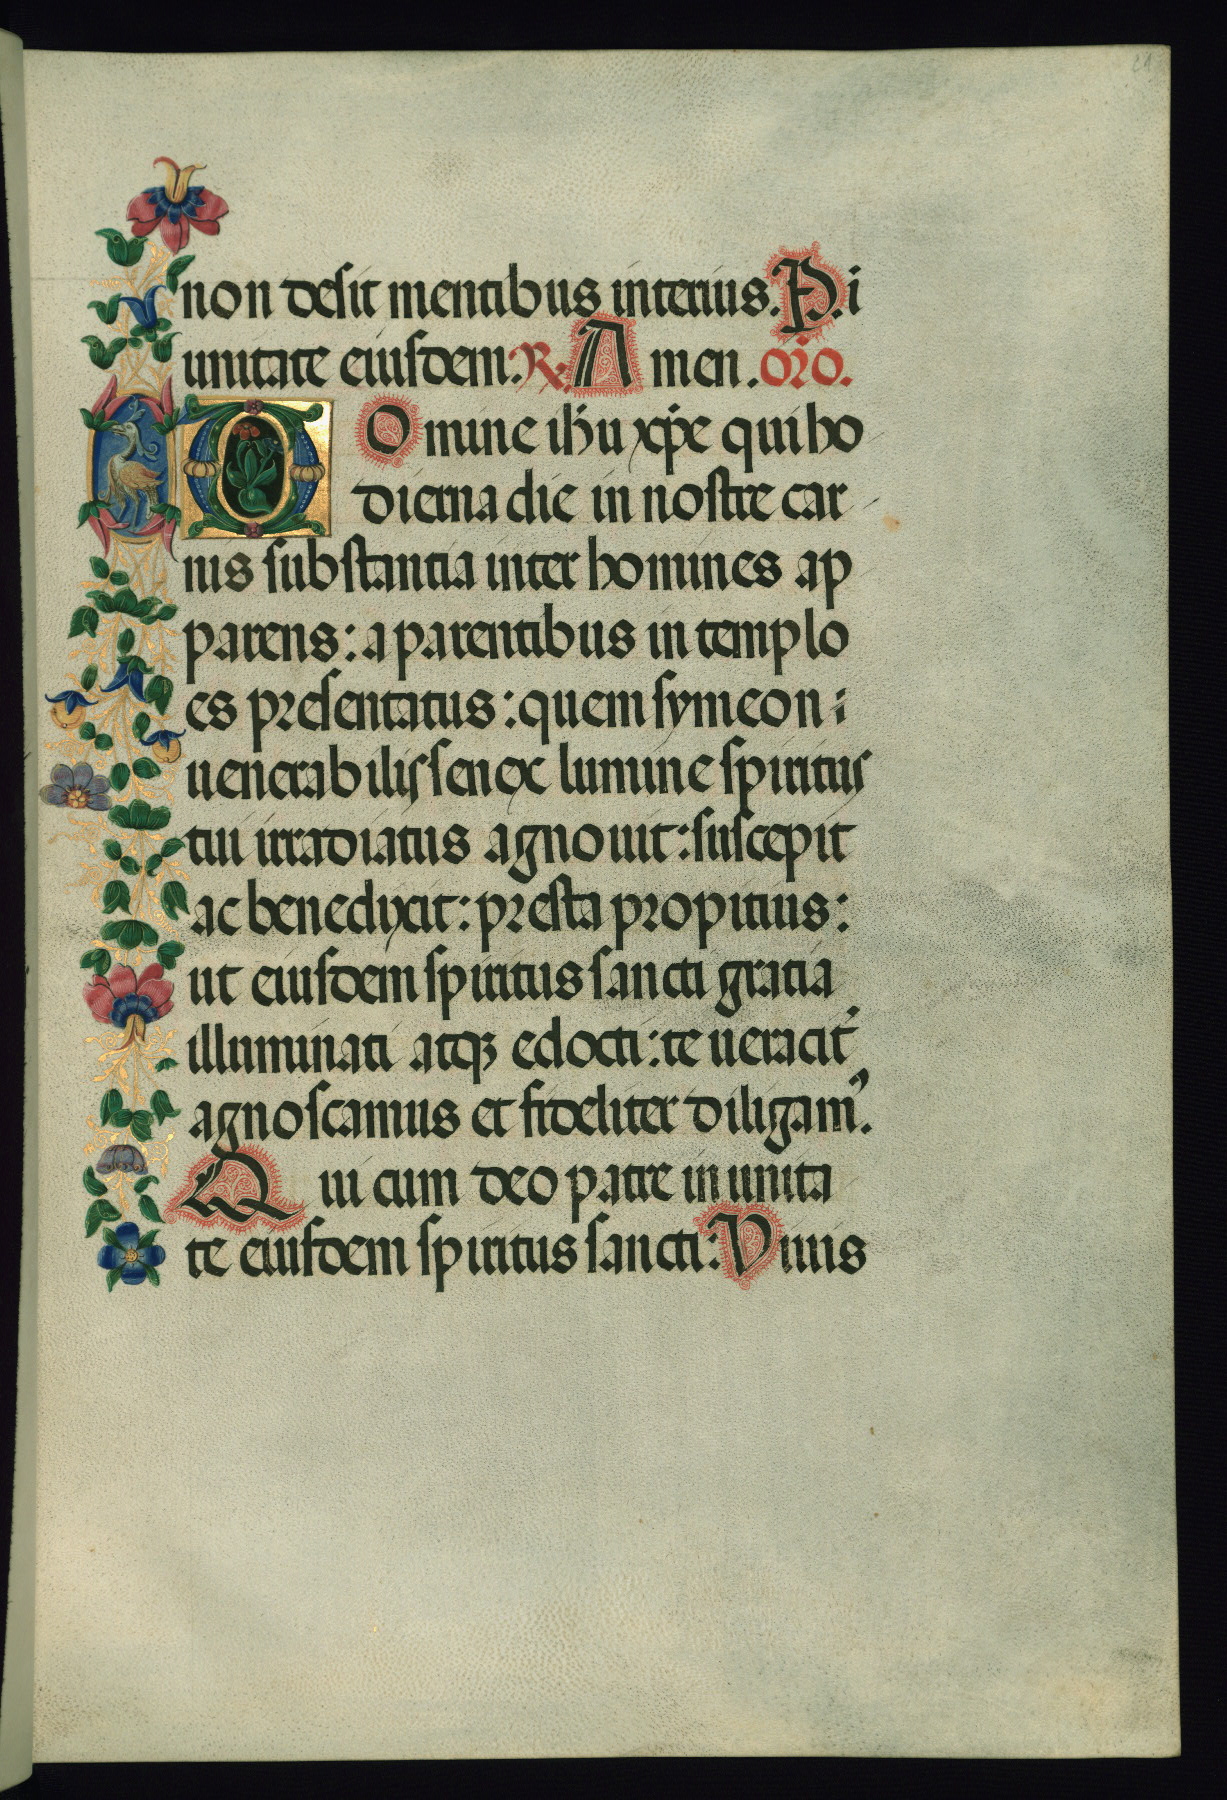 non desit mentibus interius. Pi
unitate eiusdem: R. Amen. oro.
DOmine ihu xpe qui ho
dierna die in nostre car
nis substantia inter homines ap
parens: a parentibus in templo
es presentatus: quem symeon
uenerabilis senex lumine spiritus
tui irradiatus agnouit: suscepit
ac benedixit: presta propitius:
ut eiusdem spiritus sancti gratia
illuminati atqꝫ edocti: te ueracit
agnoscamus et fideliter diligam᾽.
Qui cum deo patre in unita
te eiusdem spiritus sancti: Viuis